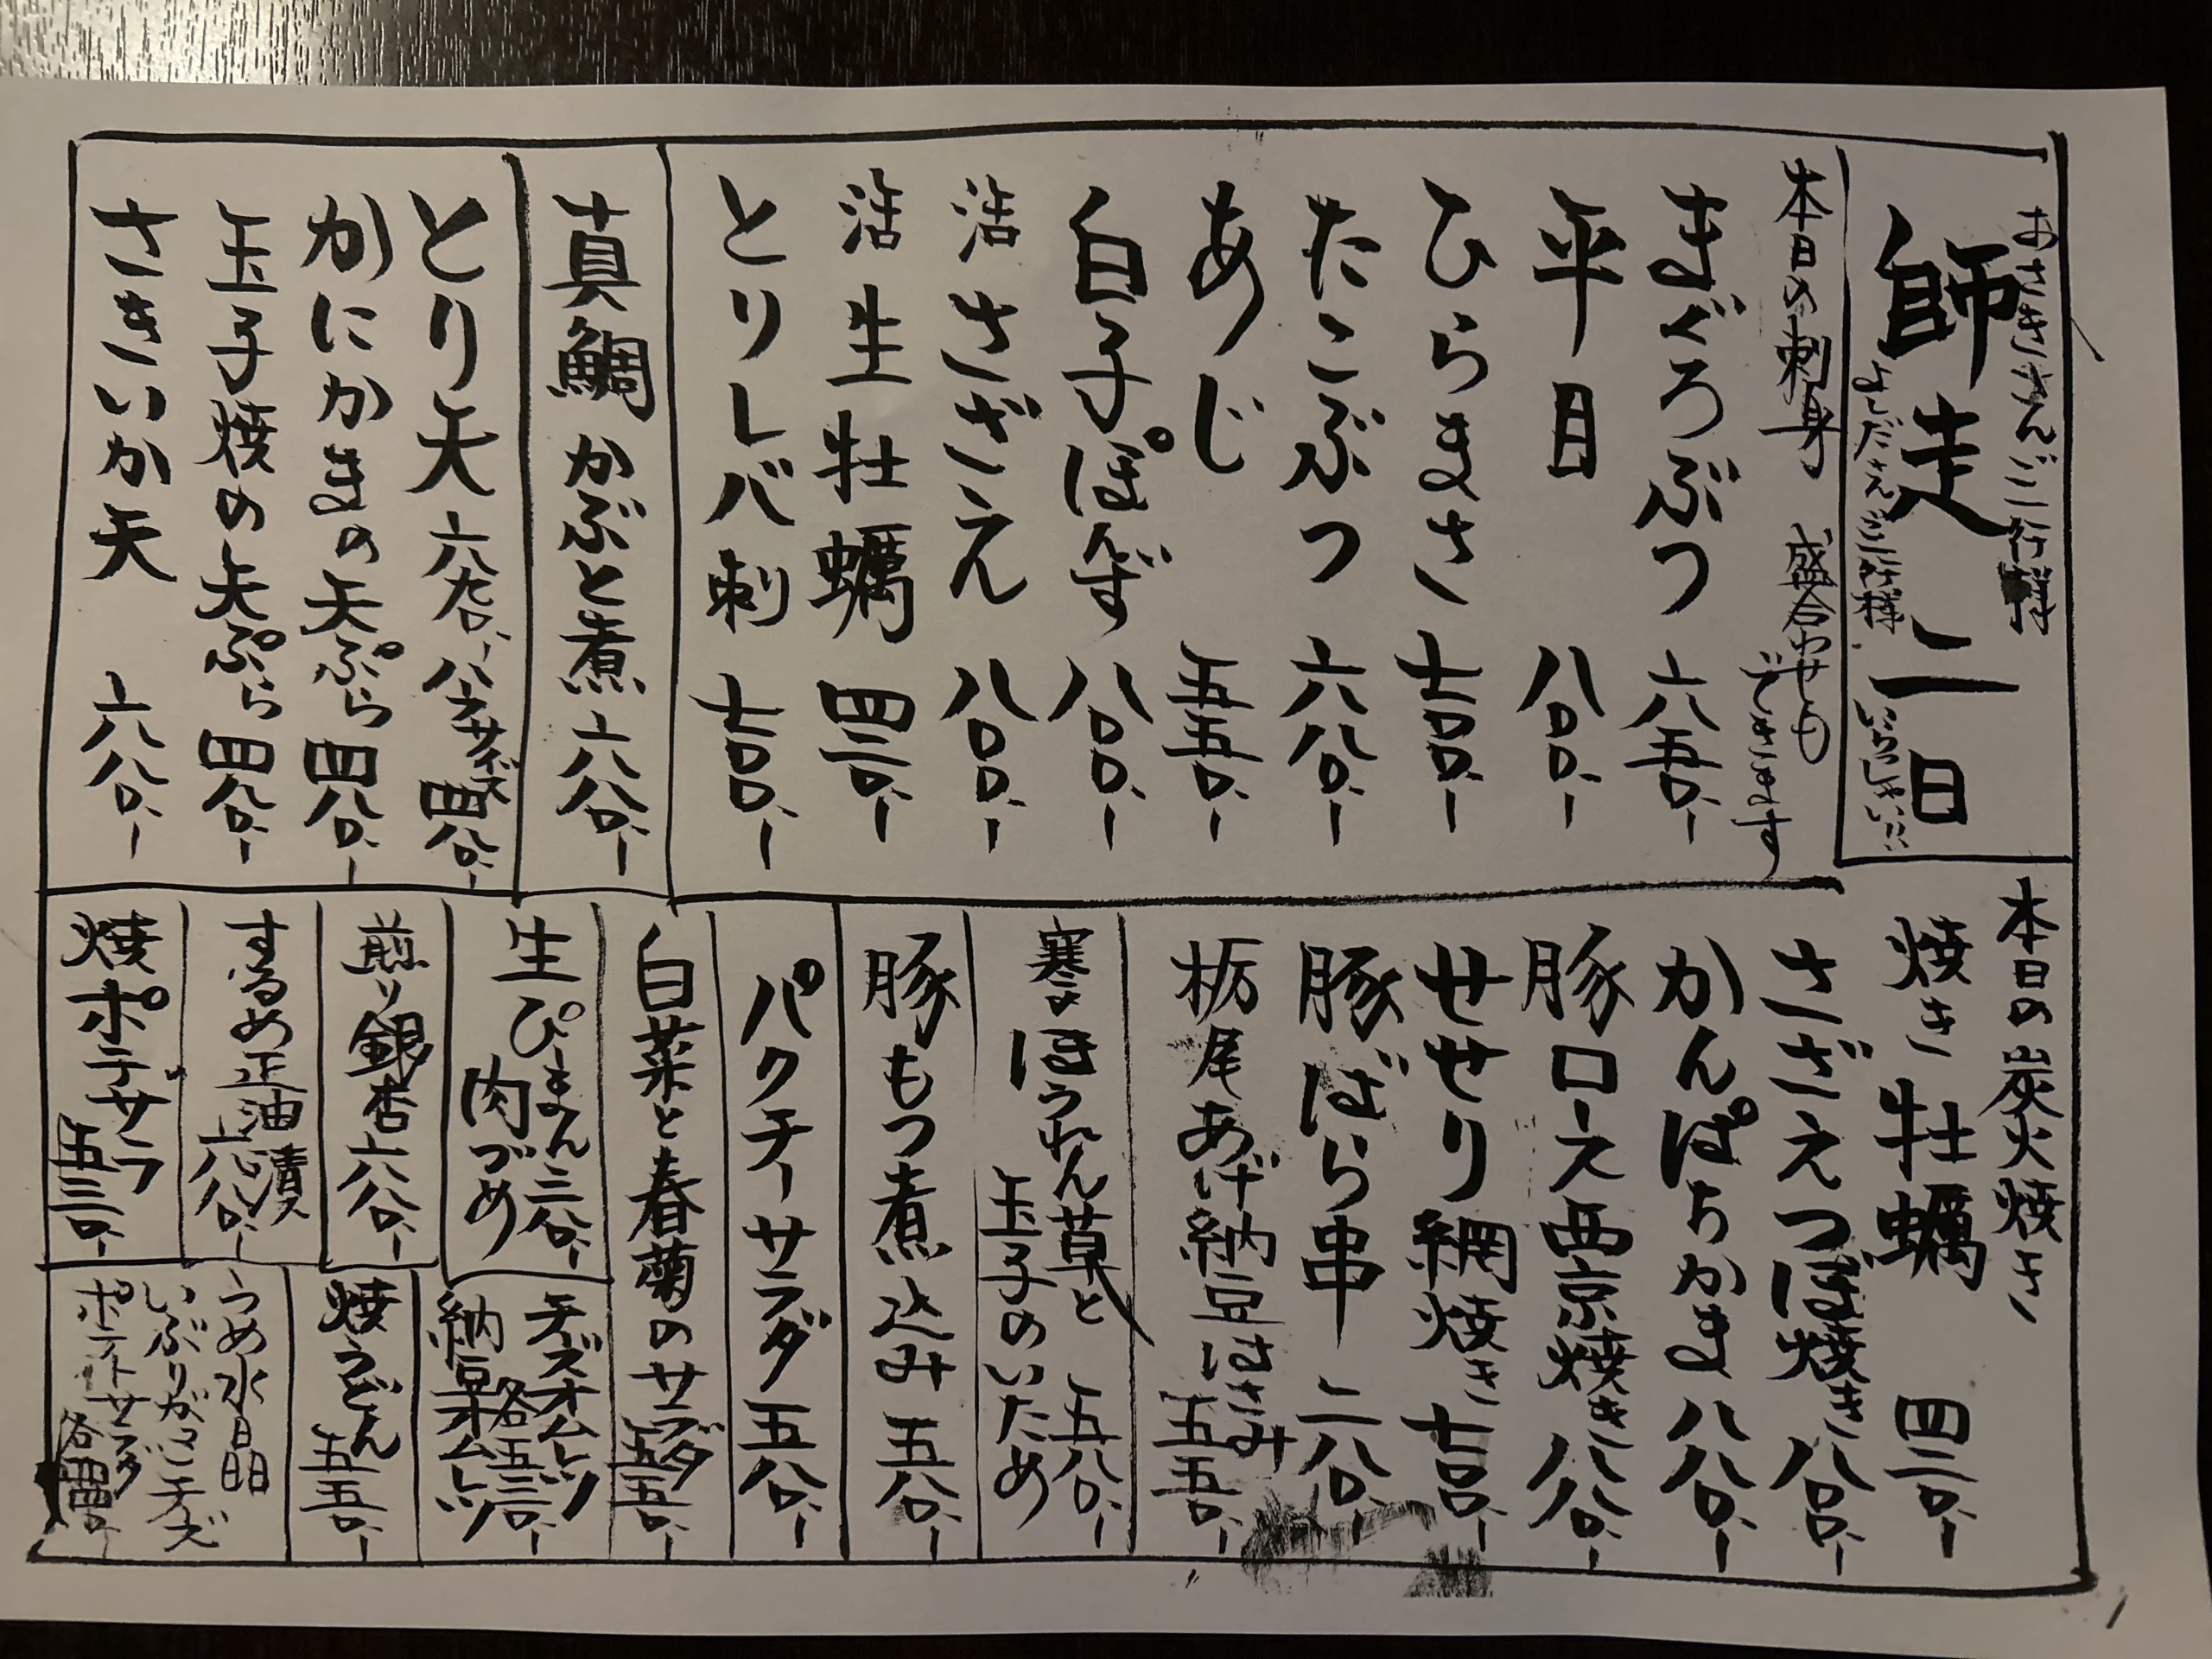 おさきさんご一行様
師走 二日
よしださんご一行様
いらっしゃい!!
本日の刺身 盛合わせも
できます
まぐろぶつ 六五〇、-
平目 八〇〇、-
ひらまさ 七〇〇、-
たこぶつ 六八〇、-
あじ 五五〇、-
白子ぽんず 八〇〇、-
活さざえ 八〇〇、-
活生牡蠣 四二〇、-
とりレバ刺 七〇〇、-
真鯛かぶと煮 六八〇、-
とり天 六八〇、- ハーフサイズ 四八〇、-
かにかまの天ぷら 四八〇、-
玉子焼の天ぷら 四八〇、-
さきいか天 六八〇、-
本日の炭火焼き
焼き牡蠣 四二〇、-
さざえつぼ焼き 八〇〇、-
かんぱちかま 八八〇、-
豚ロース西京焼き 八八〇、-
せせり網焼き 七〇〇、-
豚ばら串 二八〇、-
栃尾あげ納豆はさみ 五五〇、-
寒ほうれん草と
玉子のいため 五八〇、-
豚もつ煮込み 五八〇、-
パクチーサラダ 五八〇、-
白菜と春菊のサラダ 五五〇、-
生ぴーまん 三八〇、-
肉づめ
煎り銀杏 六八〇、-
するめ正油漬 六八〇、-
焼ポテサラ 五三〇、-
チーズオムレツ
納豆オムレツ
各五三〇、-
焼うどん 五五〇、-
うめ水晶
いぶりがっこチーズ
ポテトサラダ
各四五〇、-